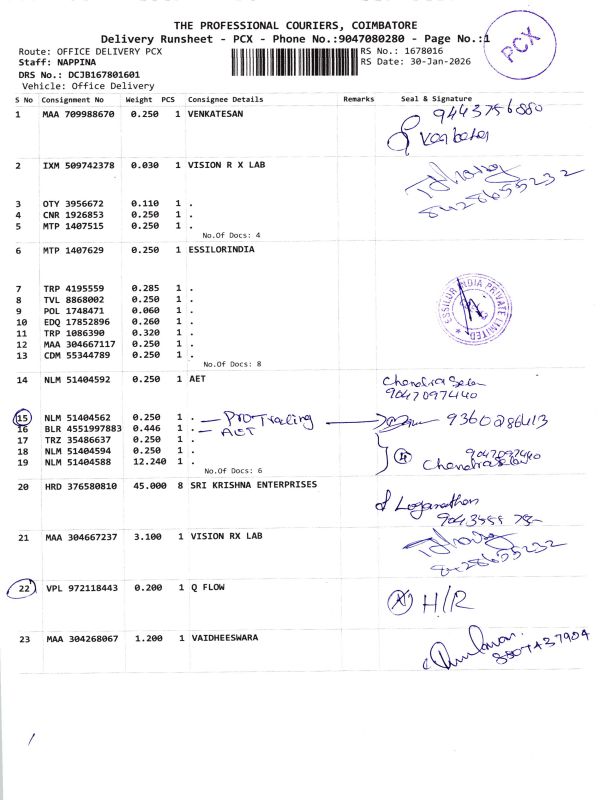 THE PROFESSIONAL COURIERS, COIMBATORE
Delivery Runsheet - PCX - Phone No.:9047080280 - Page No.:1
PCX
Route: OFFICE DELIVERY PCX
RS No.: 1678016
Staff: NAPPINA
RS Date: 30-Jan-2026
DRS No.: DCJB167801601
Vehicle: Office Delivery
S No Consignment No Weight PCS Consignee Details Remarks Seal & Signature
1 MAA 709988670 0.250 1 VENKATESAN
2 IXM 509742378 0.030 1 VISION R X LAB
8428655232
3 OTY 3956672 0.110 1 .
4 CNR 1926853 0.250 1 .
5 MTP 1407515 0.250 1 .
No.Of Docs: 4
6 MTP 1407629 0.250 1 ESSILORINDIA
ESSILOR INDIA PRIVATE LIMITED
7 TRP 4195559 0.285 1 .
8 TVL 8868002 0.250 1 .
9 POL 1748471 0.060 1 .
10 EDQ 17852896 0.260 1 .
11 TRP 1086390 0.320 1 .
12 MAA 304667117 0.250 1 .
13 CDM 55344789 0.250 1 .
No.Of Docs: 8
14 NLM 51404592 0.250 1 AET
9047097440
15 NLM 51404562 0.250 1 . - Pro Trading 9360286413
16 BLR 4551997883 0.446 1 . - AET
17 TRZ 35486637 0.250 1 .
18 NLM 51404594 0.250 1 . 9047097440
19 NLM 51404588 12.240 1 .
No.Of Docs: 6
20 HRD 376580810 45.000 8 SRI KRISHNA ENTERPRISES
Loganathan
21 MAA 304667237 3.100 1 VISION RX LAB
8428655232
22 VPL 972118443 0.200 1 Q FLOW
H/R
23 MAA 304268067 1.200 1 VAIDHEESWARA
8807437904